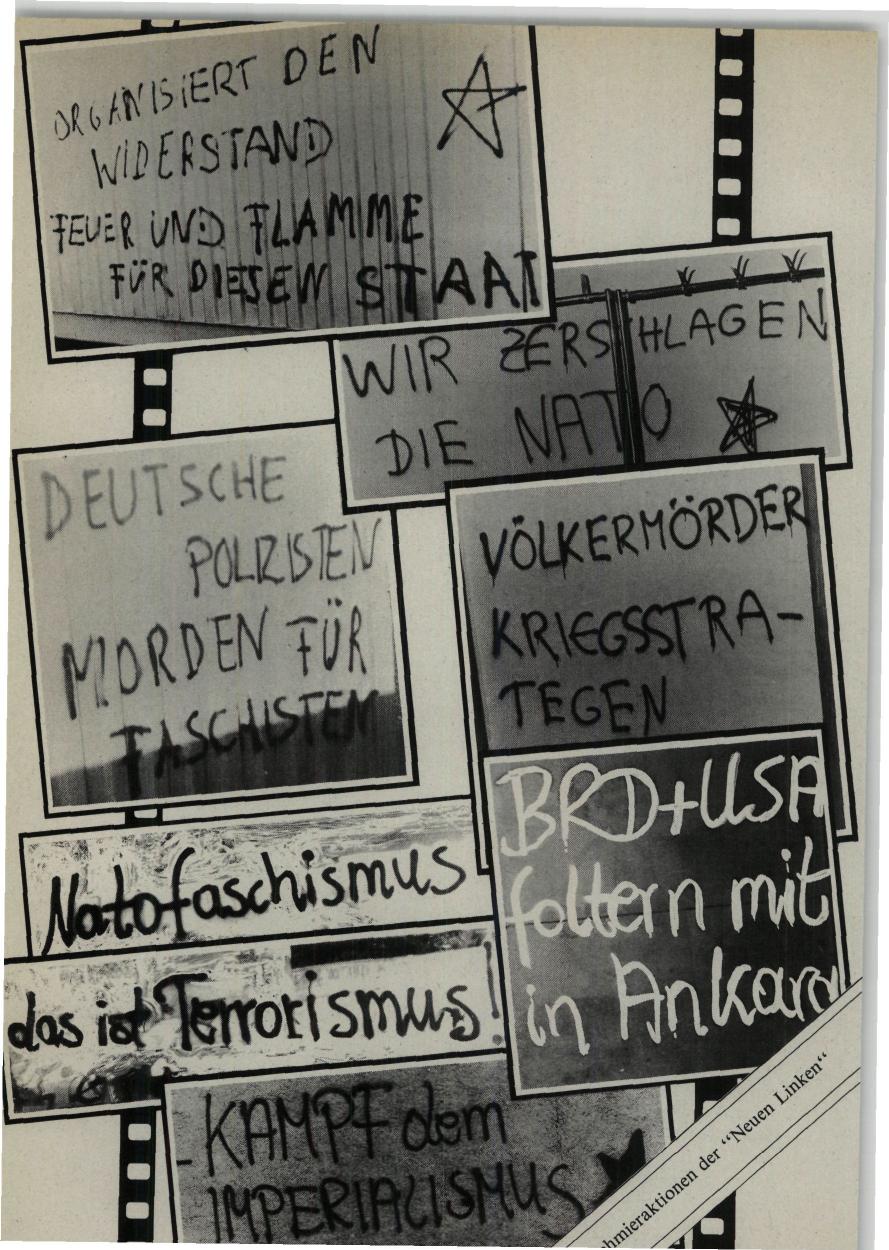 ORGANISIERT DEN
WIDERSTAND
FEUER UND FLAMME
FÜR DIESEN STAAT
WIR ZERSCHLAGEN
DIE NATO
DEUTSCHE
POLIZISTEN
MORDEN FÜR
FASCHISTEN
VÖLKERMÖRDER
KRIEGSSTRA-
TEGEN
BRD+USA
foltern mit
in Ankara
Natofaschismus
das ist Terrorismus!
KAMPF dem
IMPERIALISMUS
hmieraktionen der “Neuen Linken“